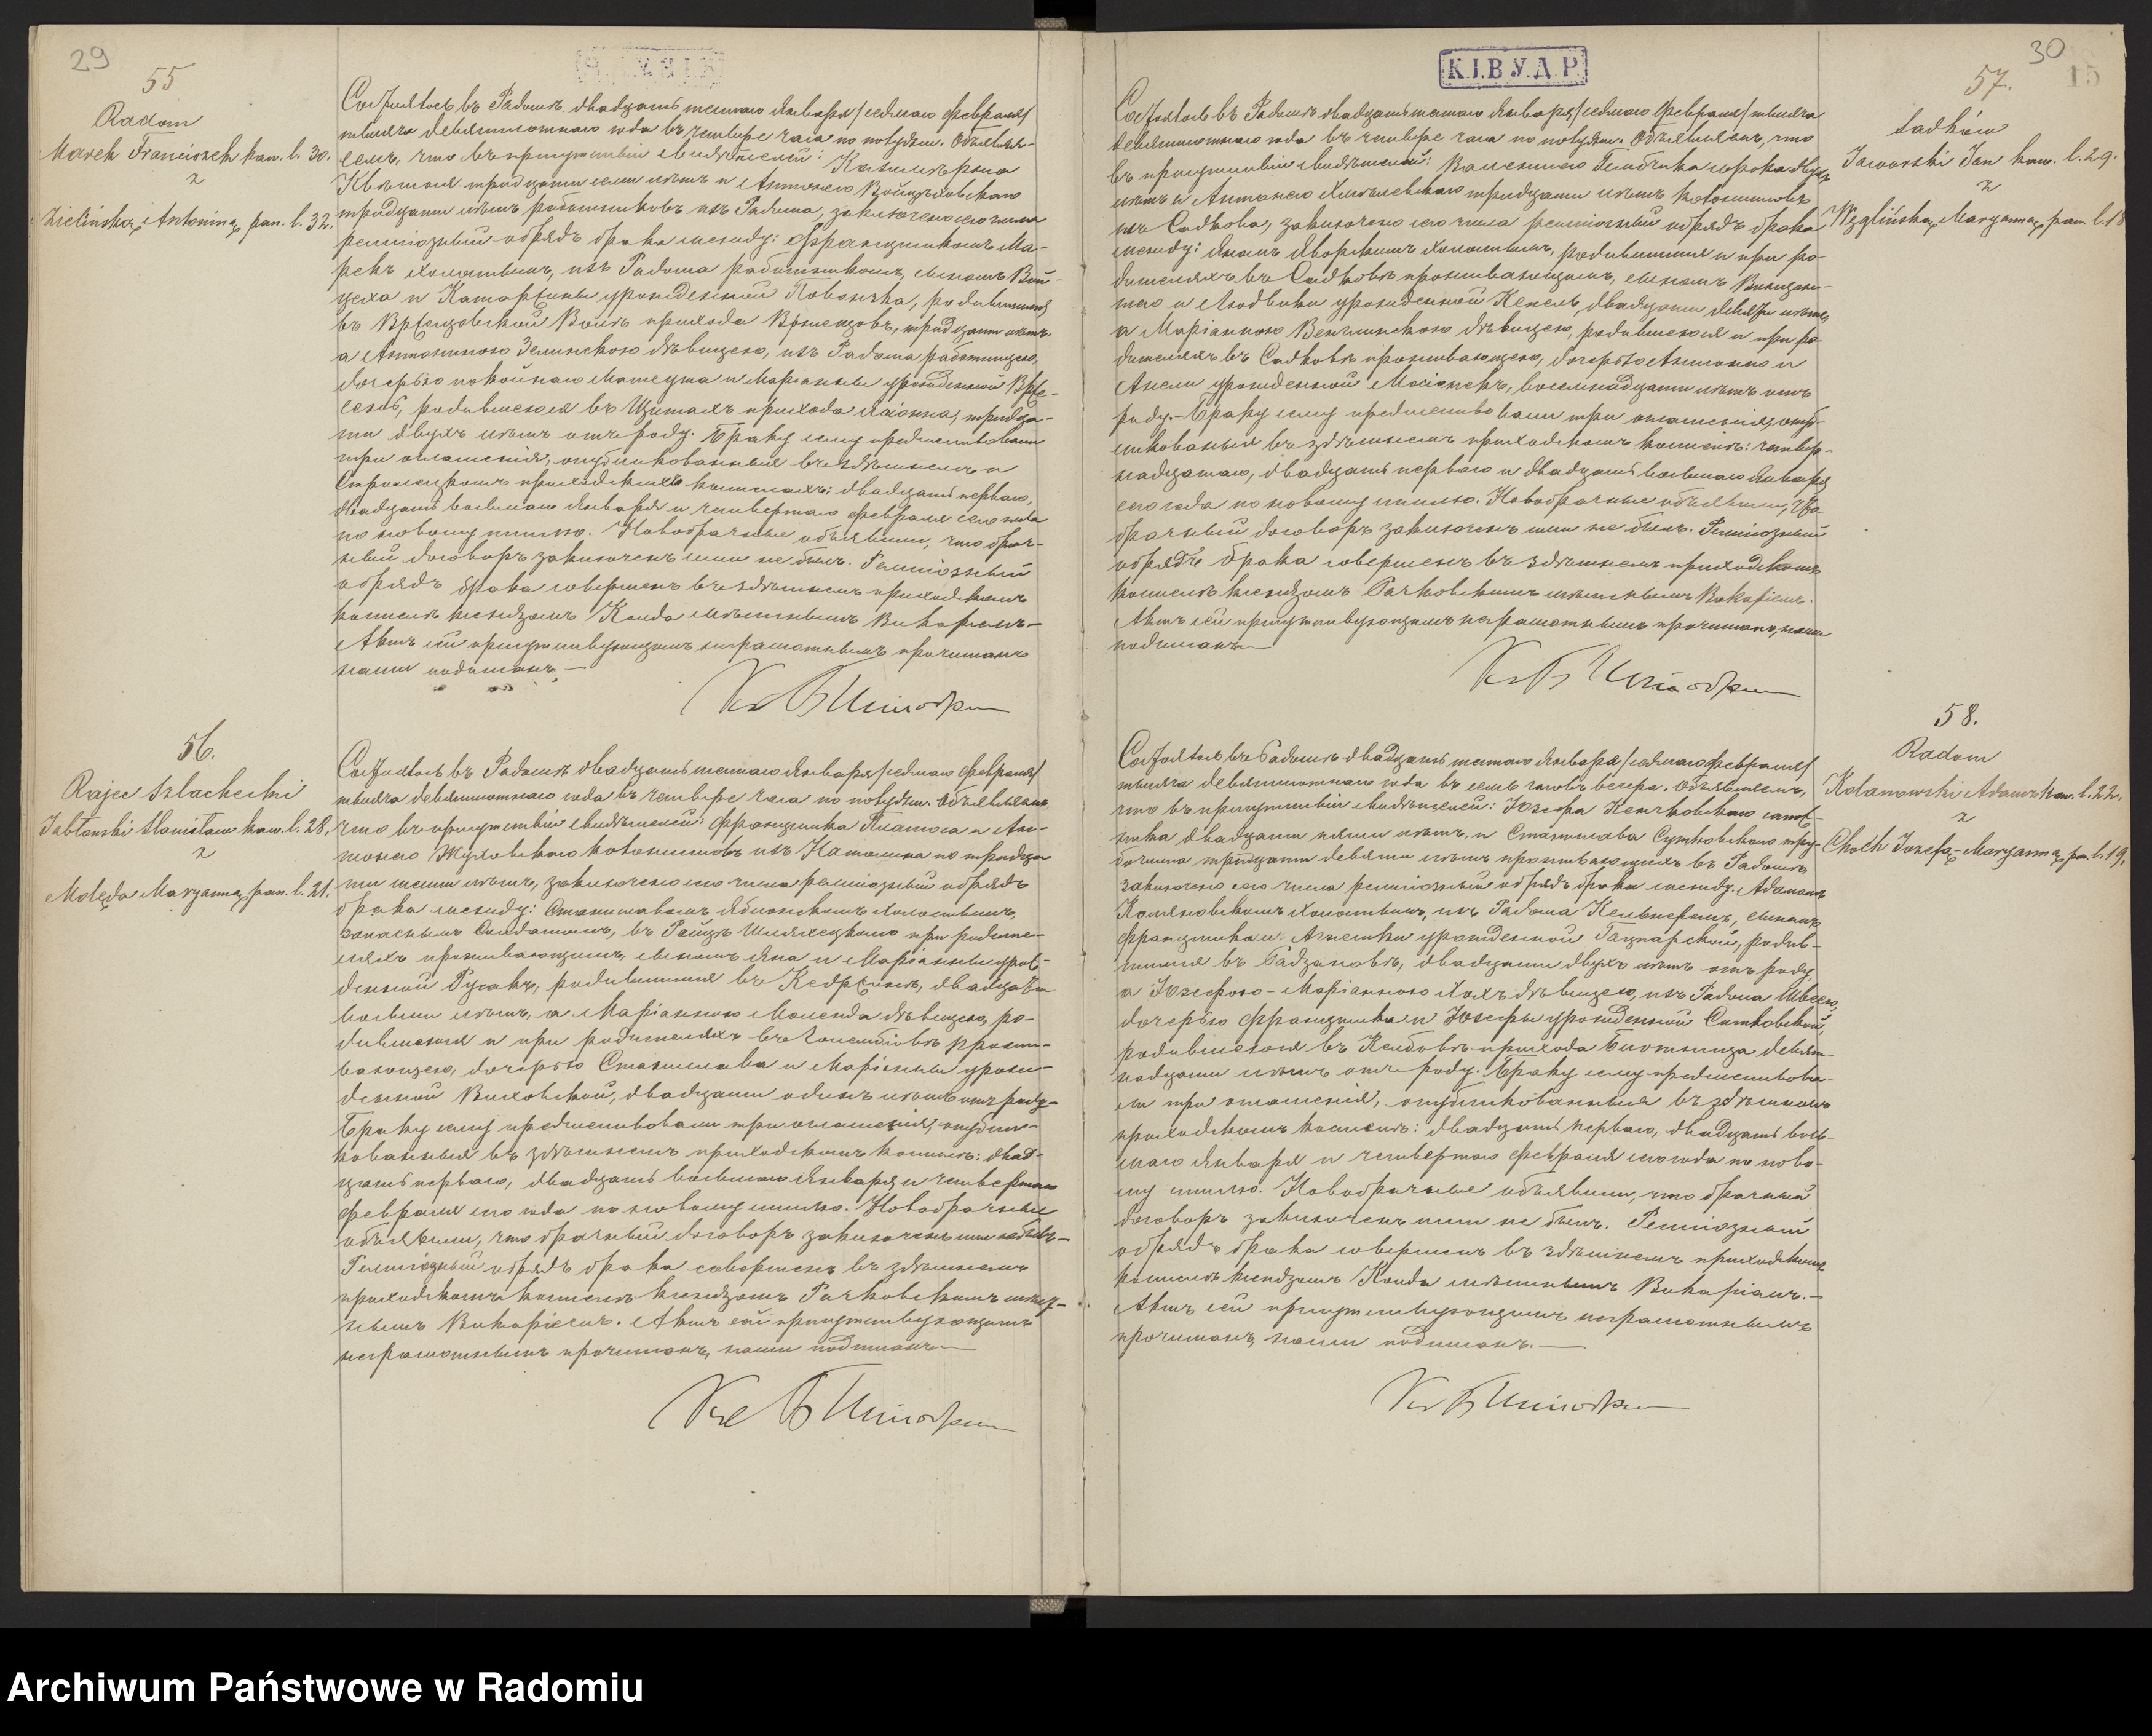 29
55
Radom
Marek Franciszek kaw. l. 30.
z
Zielińską Antoniną pan. l. 32.
Состоялось въ Радомѣ двадцать шестаго Января/седьмаго Февраля/
тысяча девятисотнаго года въ четыре часа по полудни. Объявля-
емъ, что въ присутствіи свидѣтелей: Казимѣржа
тридцати семи лѣтъ и Антонего Войцѣховскаго
тридцати лѣтъ работниковъ изъ Радома, заключено сего числа
религіозный обрядъ брака между: Францишкомъ Ма-
рекъ холостымъ, изъ Радома работникомъ, сыномъ Вой-
цеха и Катаржины урожденной родившимся
въ прихода тридцати лѣтъ
а Антониною Зелинскою дѣвицею, изъ Радома работницею,
дочерью покойнаго Матеуша и Маріанны урожденной
родившеюся въ прихода тридца-
ти двухъ лѣтъ отъ роду. Браку сему предшествовали
три оглашенія, опубликованныя въ здѣшнемъ и
приходскихъ костелахъ: двадцать перваго,
двадцать восьмаго Января и четвертаго Февраля сего года
по новому стилю. Новобрачные объявили, что брач-
ный договоръ заключенъ ими не былъ. Религіозный
обрядъ брака совершенъ въ здѣшнемъ приходскомъ
костелѣ ксендзомъ Конда мѣстнымъ Викаріемъ.-
Актъ сей присутствующимъ неграмотнымъ прочитанъ
нами подписанъ.-
56.
Rajec Szlachecki
Jabłoński Stanisław kaw. l. 28.
z
Molęda Maryanną pan. l. 21.
Состоялось въ Радомѣ двадцать шестаго Января/седьмаго Февраля/
тысяча девятисотнаго года въ четыре часа по полудни. Объявляемъ,
что въ присутствіи свидѣтелей: Францишка и Ан-
тонего Жуховскаго колонистовъ изъ по тридца-
ти шести лѣтъ, заключено сего числа религіозный обрядъ
брака между: Станиславомъ Яблонскимъ холостымъ,
запаснымъ Солдатомъ, въ Райцѣ Шляхецкимъ при родите-
ляхъ проживающимъ, сыномъ Яна и Маріанны урож-
денной родившимся въ Кедржинѣ, двадцати
восьми лѣтъ, а Маріанною Моленда дѣвицею, ро-
дившеюся и при родителяхъ въ прожи-
вающею, дочерью Станислава и Маріанны урож-
денной двадцати одинъ лѣтъ отъ роду.-
Браку сему предшествовали три оглашенія, опубли-
кованныя въ здѣшнемъ приходскомъ костелѣ: двад-
цать перваго, двадцать восьмаго Января и четвертаго
Февраля сего года по новому стилю. Новобрачные
объявили, что брачный договоръ заключенъ ими не былъ.-
Религіозный обрядъ брака совершенъ въ здѣшнемъ
приходскомъ костелѣ ксендзомъ Рачковскимъ мѣст-
нымъ Викаріемъ. Актъ сей присутствующимъ
неграмотнымъ прочитанъ, нами подписанъ.-
К.I.В У.Д Р.
30
15
57.
Sadków
Jaworski Jan kaw. l. 29.
z
Węglińską Maryanną pan. l. 18
Состоялось въ Радомѣ двадцать шестаго Января/седьмаго Февраля/тысяча
девятисотнаго года въ четыре часа по полудни. Объявляемъ, что
въ присутствіи свидѣтелей: Валентего сорока двухъ
лѣтъ и Антонего тридцати лѣтъ колонистовъ
изъ Садкова, заключено сего числа религіозный обрядъ брака
между: Яномъ Яворскимъ холостымъ, родившимся и при ро-
дителяхъ въ Садковѣ проживающимъ, сыномъ Винцен-
таго и Людвики урожденной двадцати девяти лѣтъ,
а Маріанною Венглинскою дѣвицею, родившеюся и при ро-
дителяхъ въ Садковѣ проживающею, дочерью Антонего и
Анели урожденной восемнадцати лѣтъ отъ
роду.- Браку сему предшествовали три оглашенія, опуб-
ликованныя въ здѣшнемъ приходскомъ костелѣ: четыр-
надцатаго, двадцать перваго и двадцать восьмаго Января
сего года по новому стилю. Новобрачные объявили, что
брачный договоръ заключенъ ими не былъ. Религіозный
обрядъ брака совершенъ въ здѣшнемъ приходскомъ
костелѣ ксендзомъ Рачковскимъ мѣстнымъ Викаріемъ.
Актъ сей присутствующимъ неграмотнымъ прочитанъ, нами
подписанъ.-
58.
Radom
Kolanowski Adam kaw. l. 22.
z
Choch Józefą-Maryanną pan. l. 19.
Состоялось въ Радомѣ двадцать шестаго Января/седьмаго Февраля/
тысяча девятисотнаго года въ семь часовъ вечера. Объявляемъ,
что въ присутствіи свидѣтелей: Юзефа
двадцати пяти лѣтъ, и Станислава
тридцати девяти лѣтъ проживающихъ въ Радомѣ
заключено сего числа религіозный обрядъ брака между: Адамомъ
Коляновскимъ холостымъ, изъ Радома Кельнеромъ, сыномъ
Францишка и Агнешки урожденной родив-
шимся въ двадцати двухъ лѣтъ отъ роду,
а Юзефою-Маріанною Хохъ дѣвицею, изъ Радома Швеею,
дочерью Францишка и Юзефы урожденной
родившеюся въ прихода девят-
надцати лѣтъ отъ роду. Браку сему предшествова-
ли три оглашенія, опубликованныя въ здѣшнемъ
приходскомъ костелѣ: двадцать перваго, двадцать вось-
маго Января и четвертаго Февраля сего года по ново-
му стилю. Новобрачные объявили, что брачный
договоръ заключенъ ими не былъ. Религіозный
обрядъ брака совершенъ въ здѣшнемъ приходскомъ
костелѣ ксендзомъ Конда мѣстнымъ Викаріемъ.-
Актъ сей присутствующимъ неграмотнымъ
прочитанъ, нами подписанъ.-
Archiwum Państwowe w Radomiu